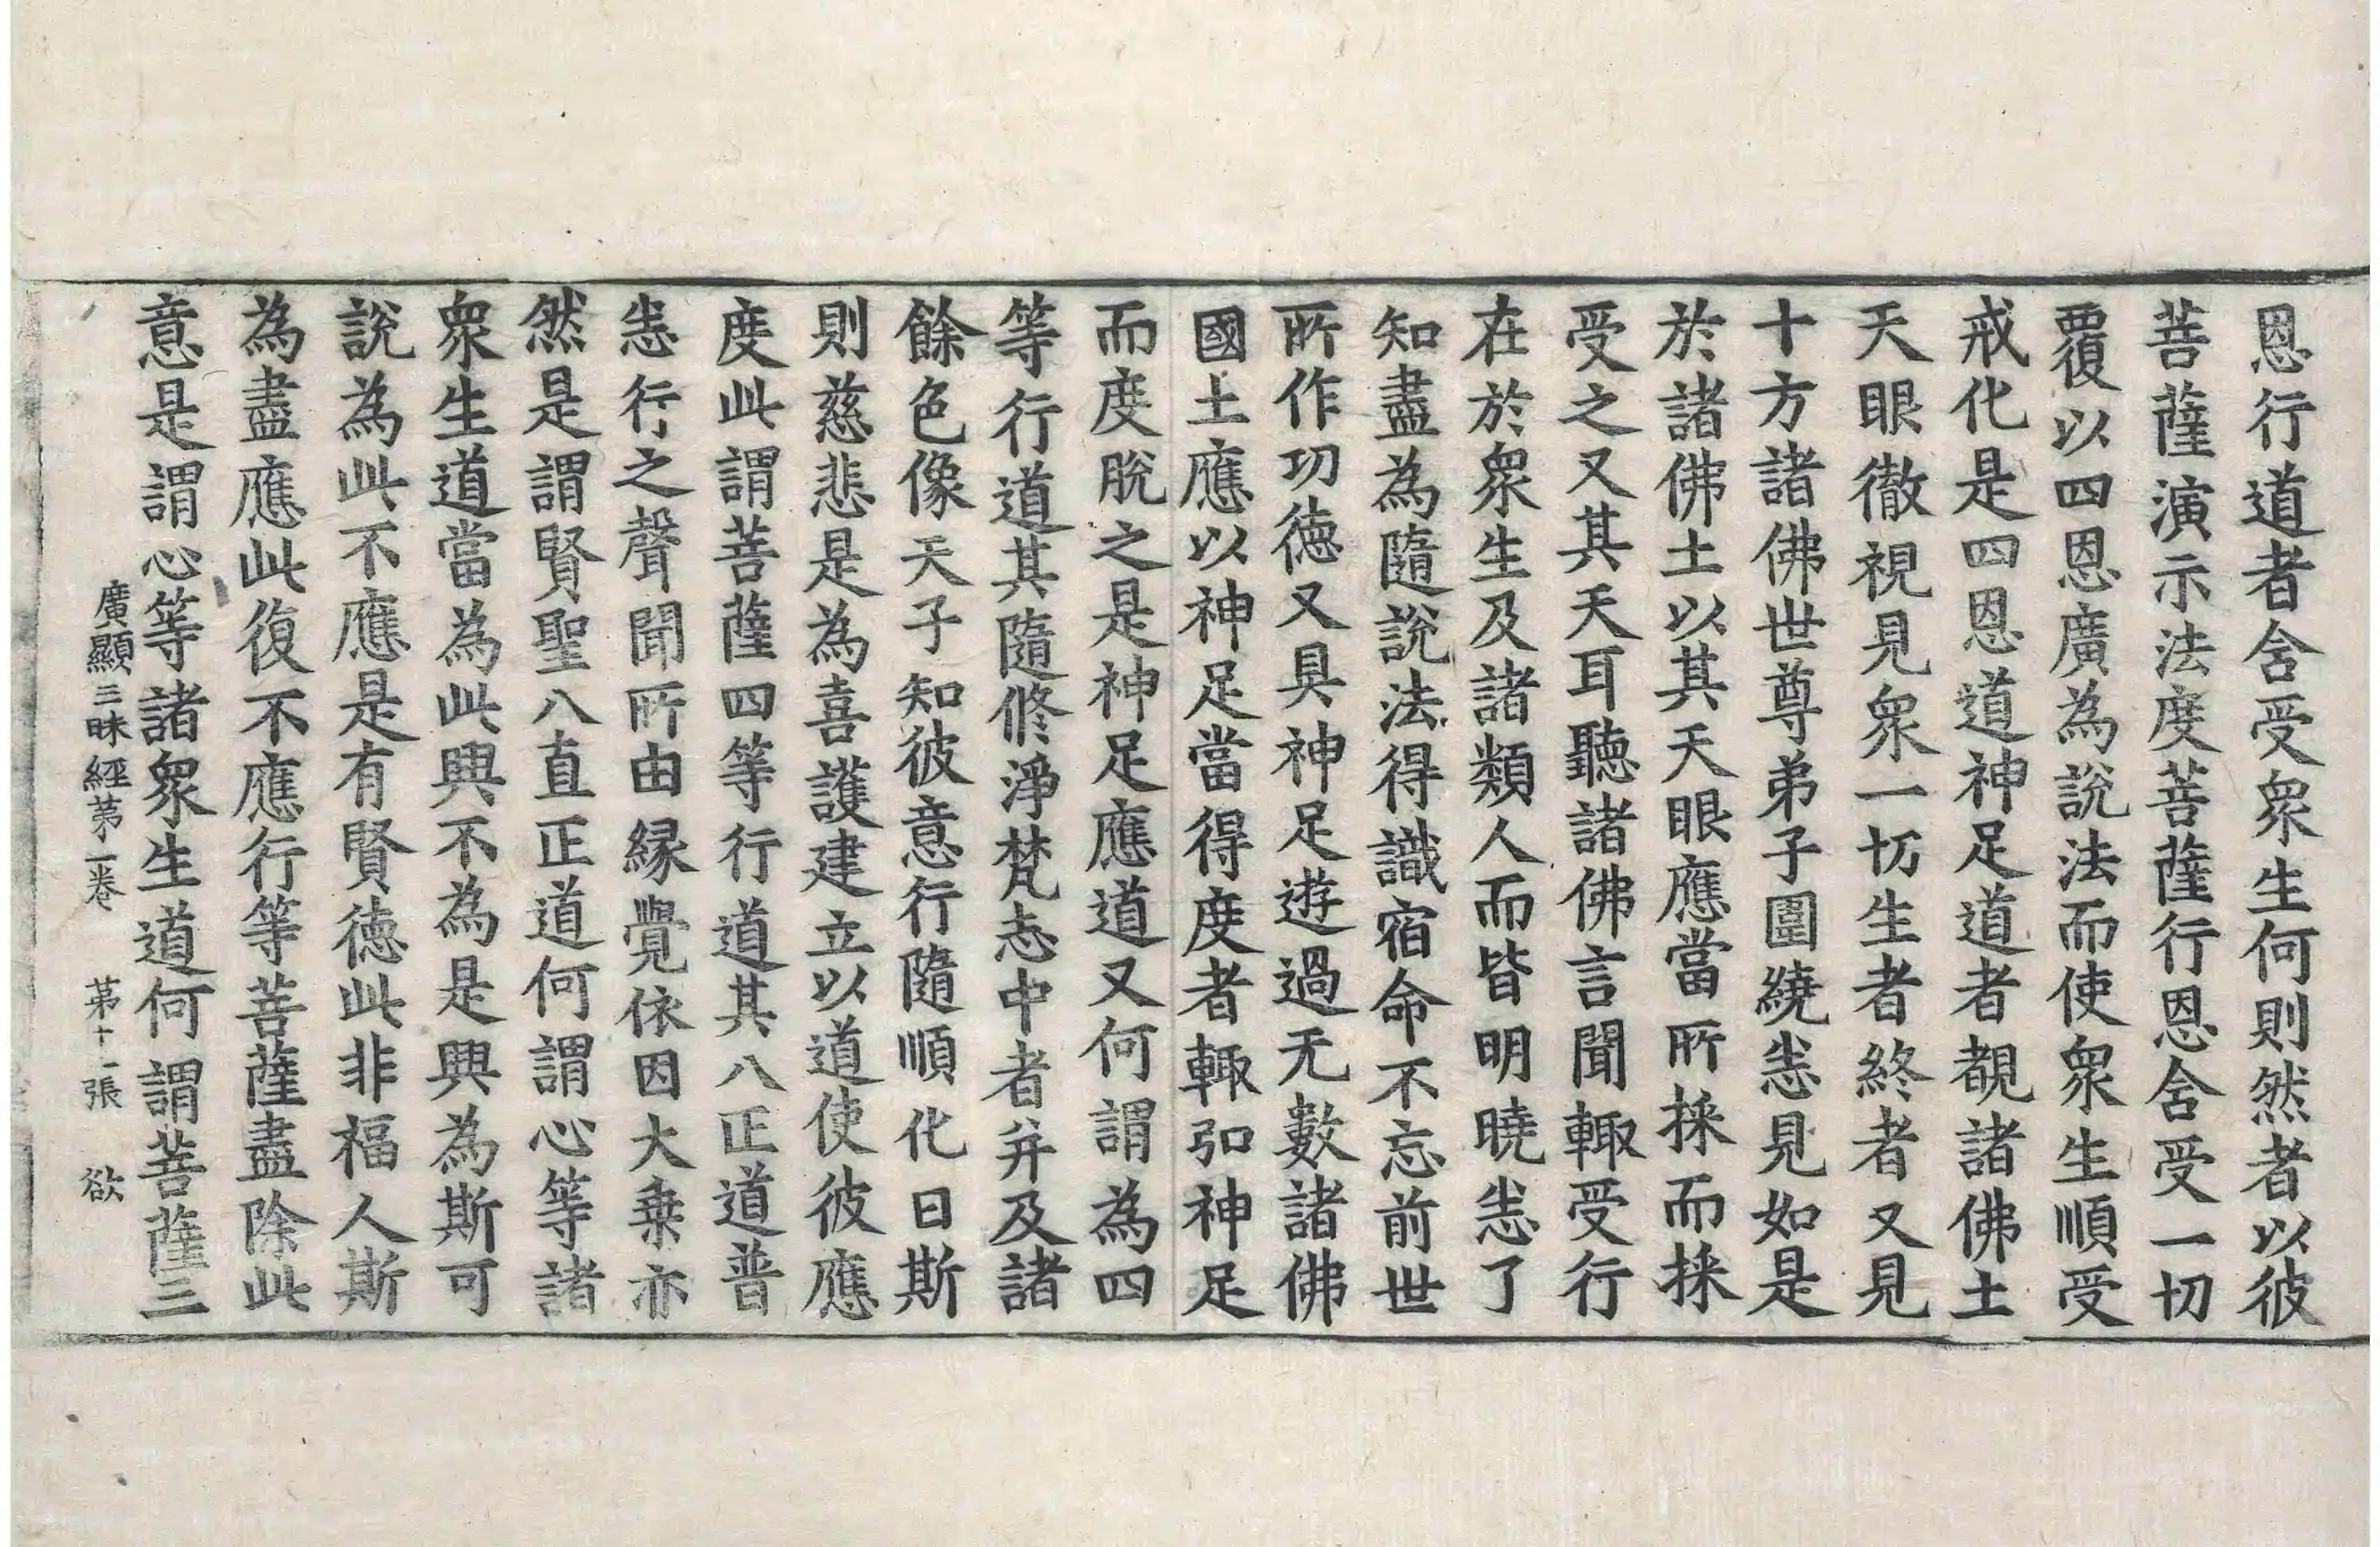 恩行道者含受衆生何則然者以彼
菩薩演示法度菩薩行恩含受一切
覆以四恩廣為說法而使衆生順受
戒化是四恩道神足道者覩諸佛土
天眼徹視見衆一切生者終者又見
十方諸佛世尊弟子圍繞恙見如是
於諸佛土以其天眼應當所採而採
受之又其天耳聽諸佛言聞輙受行
在於衆生及諸類人而皆明曉恙了
知盡為隨說法得識宿命不忘前世
所作功德又具神足遊過无數諸佛
國土應以神足當得度者輙弘神足
而度脫之是神足應道又何謂為四
等行道其隨修淨梵志中者并及諸
餘色像天子知彼意行隨順化日斯
則慈悲是為喜護建立以道使彼應
度此謂菩薩四等行道其八正道普
恙行之聲聞所由緣覺依因大乗亦
然是謂賢聖八直正道何謂心等諸
衆生道當為此興不為是興為斯可
說為此不應是有賢德此非福人斯
為盡應此復不應行等菩薩盡除此
意是謂心等諸衆生道何謂菩薩三
廣顯三昧經苐一卷 苐十一張 欲